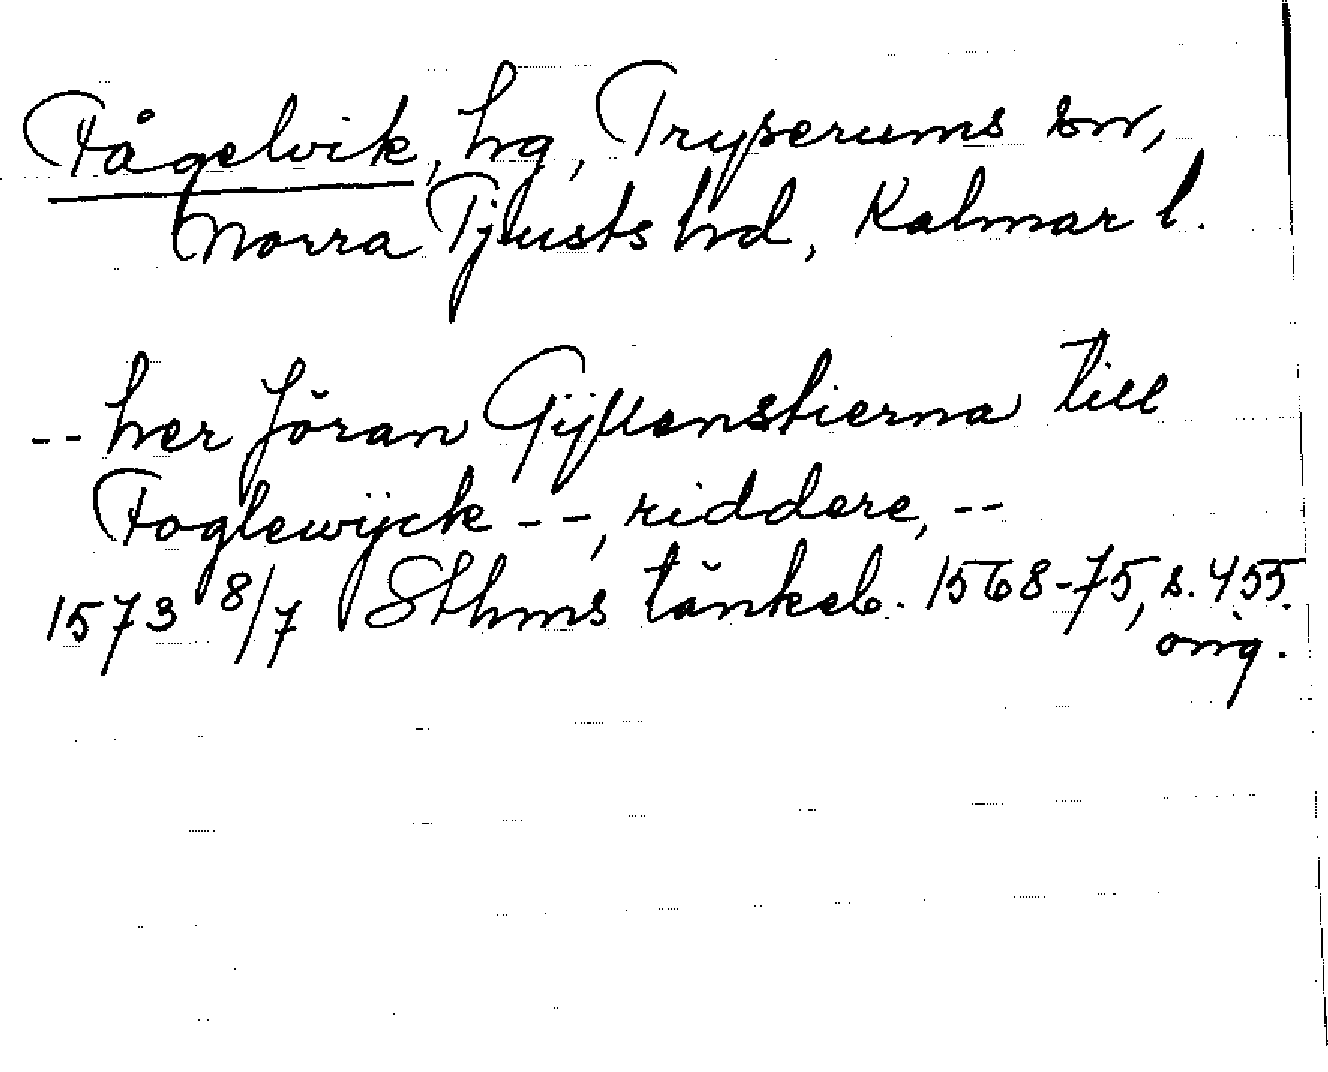 Fågelvik, hg, Tryserums sn,
Norra Tjusts hrd, Kalmar l.
-- her Jöran Gÿllenstierna till
Foglewÿck --, riddere, --
1573 8/7 Sthms tänkeb. 1568-75, s. 455.
orig.